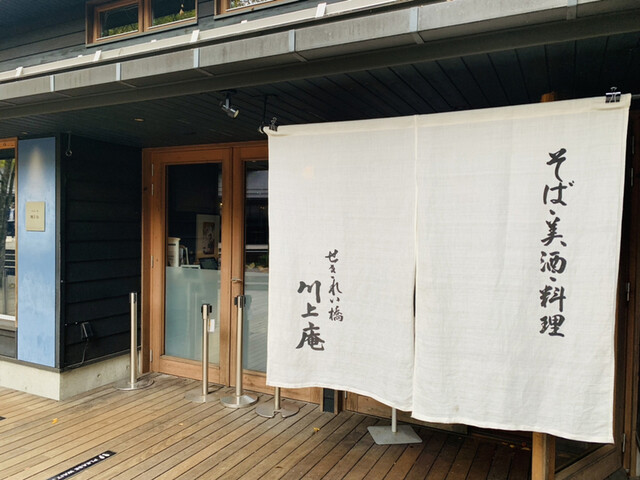 そば・美酒・料理
せきれい橋
川上庵
PLEASE WAIT